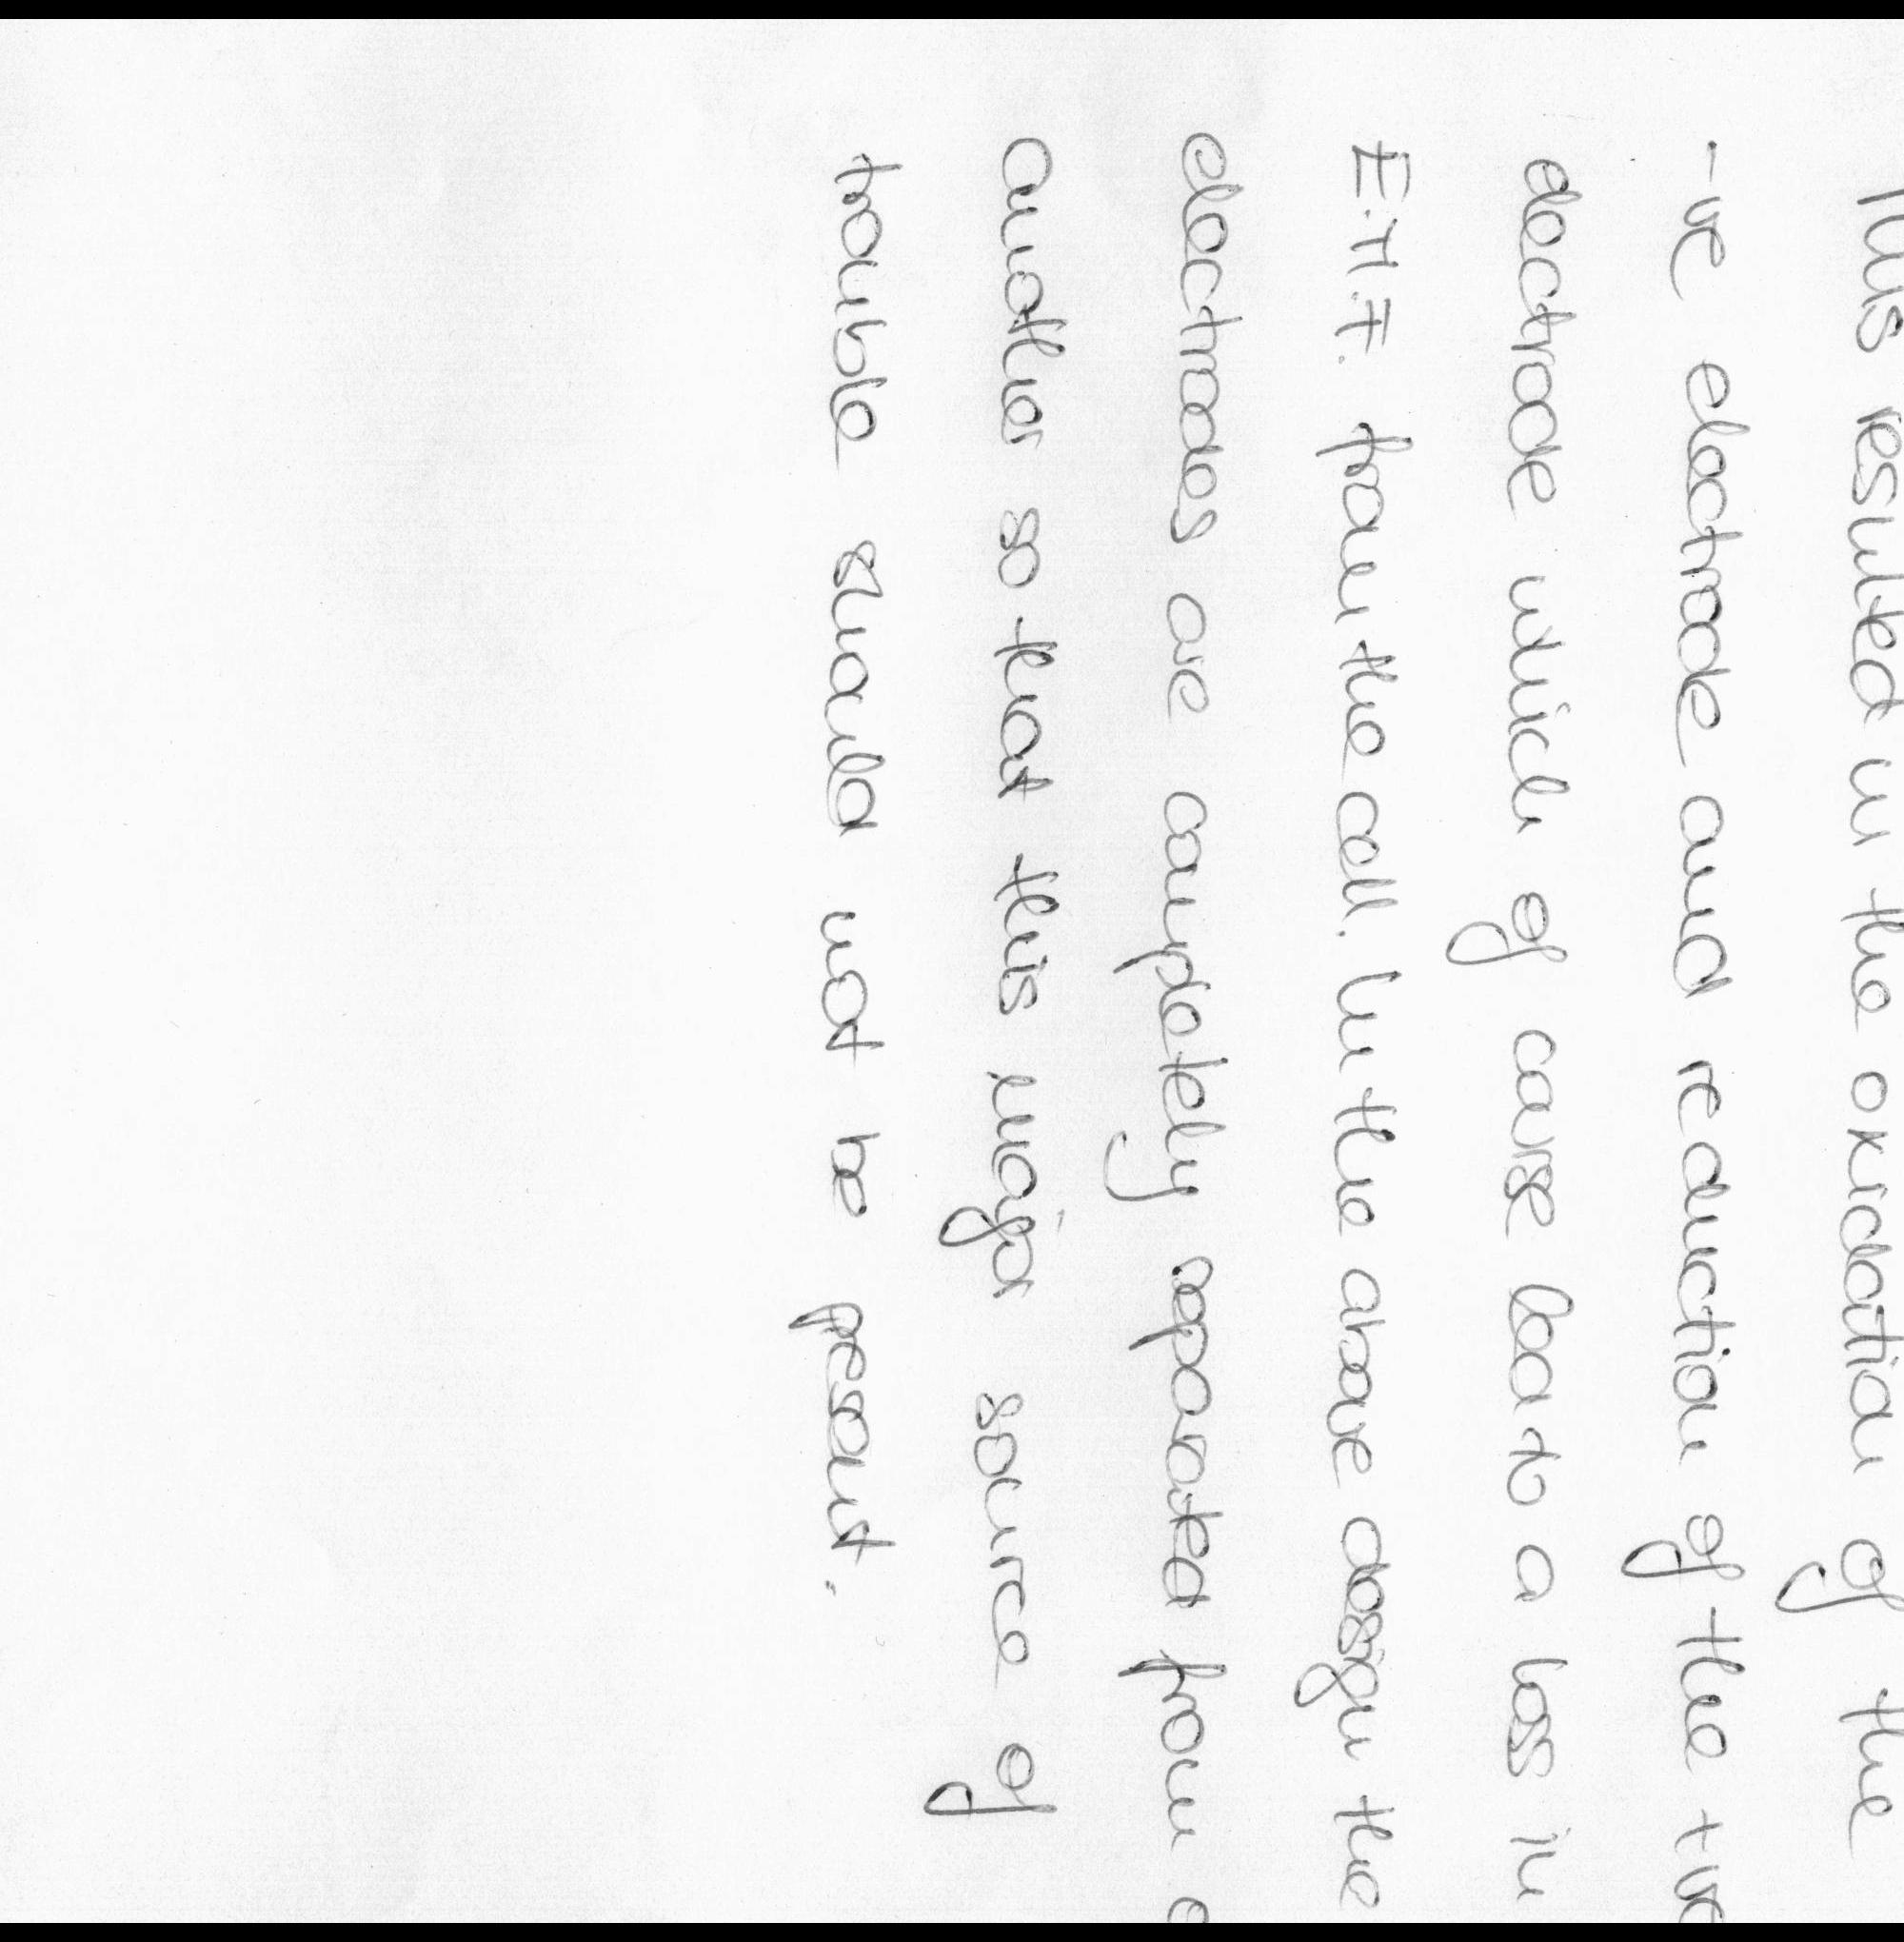 This resulted in the oxidation of the
-ve electrode and reduction of the +ve
electrode which of caurse lead to a loss in
E.M.F. from the cell. In the above design the
electrodes are completely separated from
another so that this major source of
trouble should not be pesent.